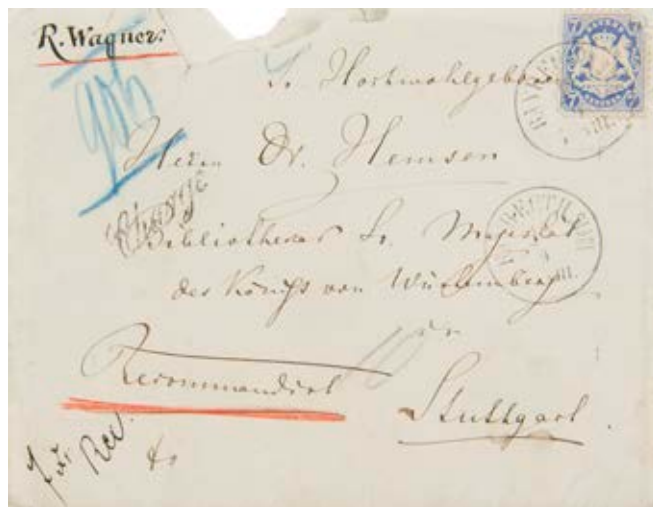 R. Wagner.
7 7
Sr. Hochwohlgeboren
906
Herrn Dr. Hemsen
Chargé
Bibliothekar Sr. Majestät
des Königs von Württemberg
in
Recommandirt
Stuttgart.
Rec.